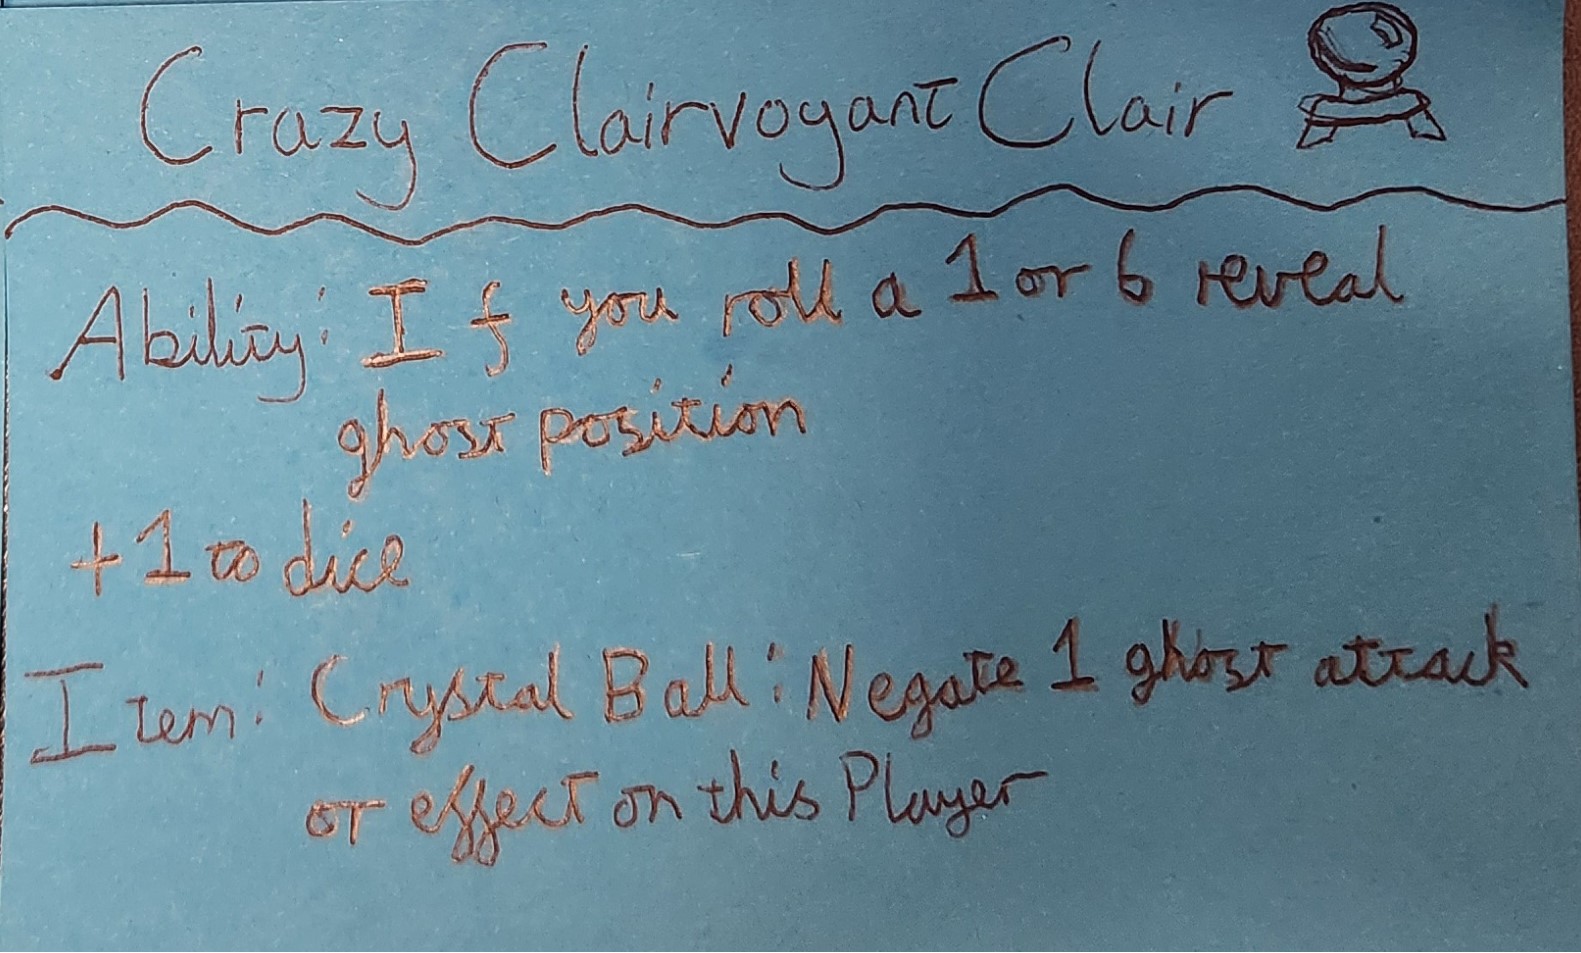 Crazy Clairvoyant Clair
Ability: If you roll a 1 or 6 reveal
ghost position
+1 to dice
Item: Crystal Ball: Negate 1 ghost attack
or effect on this Player